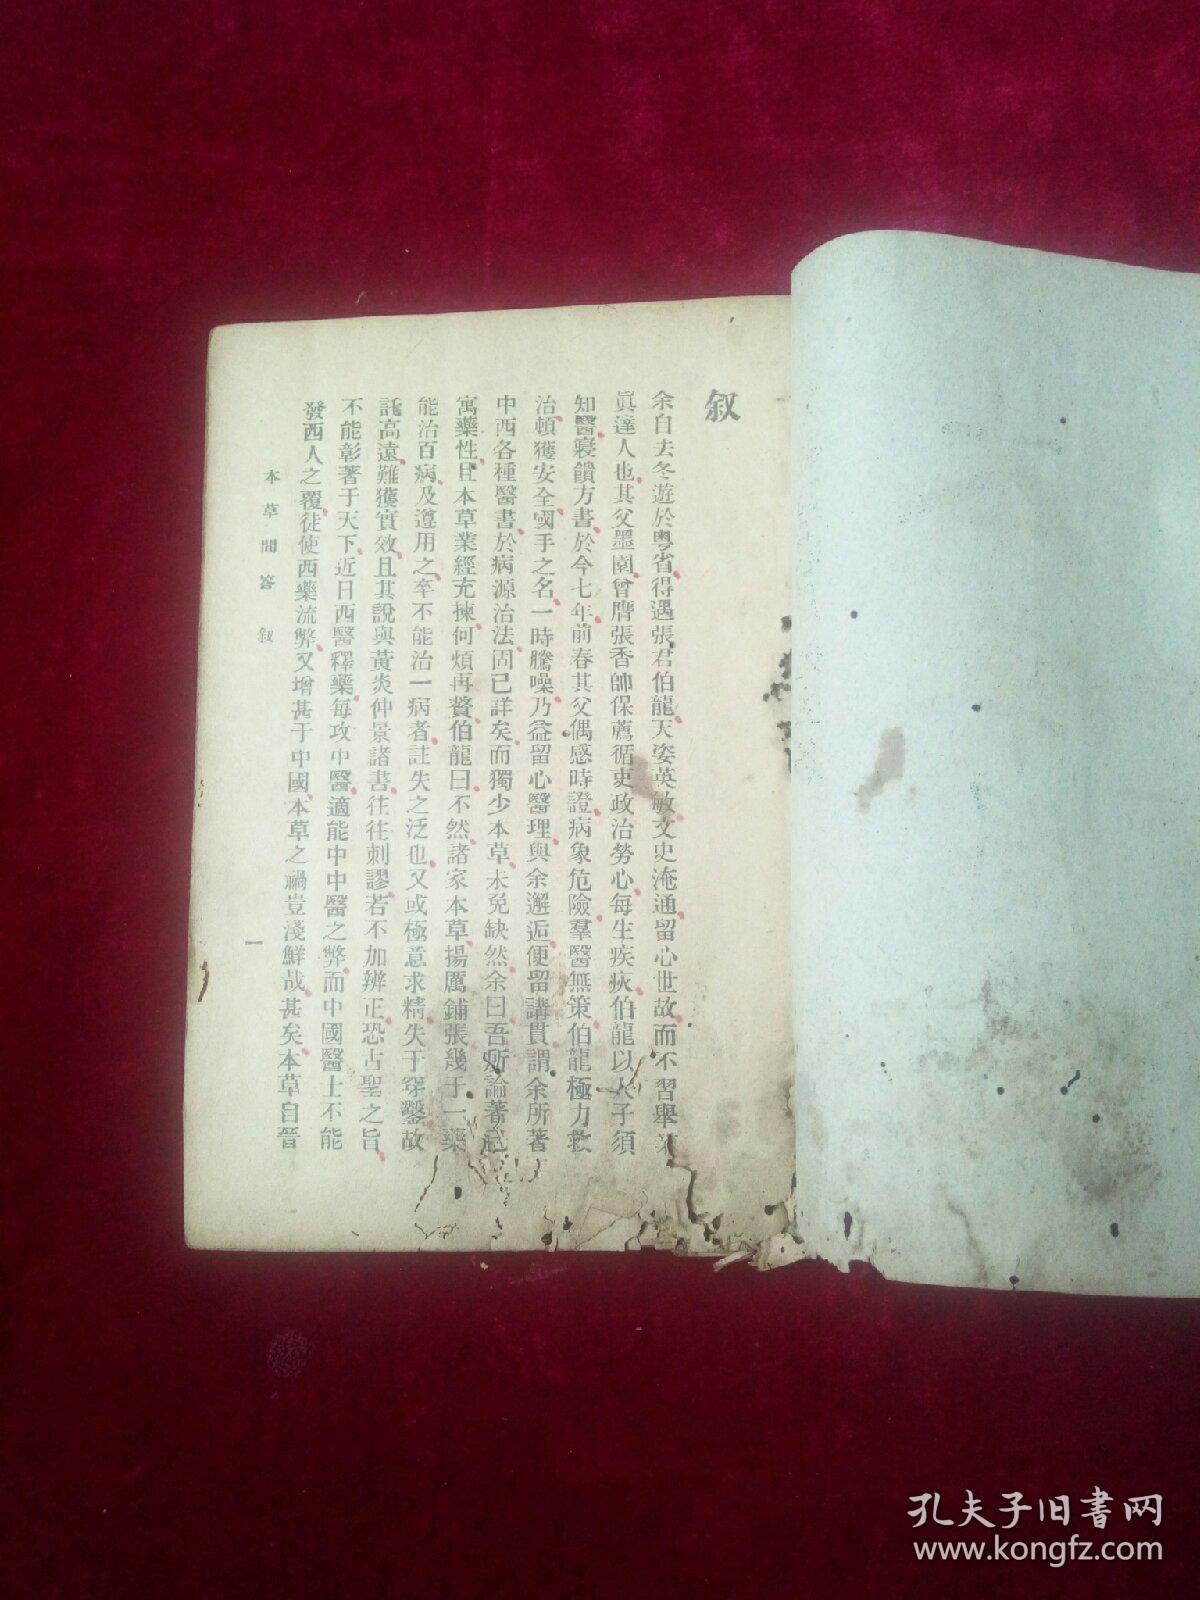 叙
余自去冬遊於粤省得遇張君伯龍天姿英敏文史淹通留心世故而不習舉業
眞達人也其父墨園曾膺張香帥保薦循吏政治勞心每生疾疢伯龍以人子須
知醫寢饋方書於今七年前春其父偶感時證病象危險羣醫無策伯龍極力救
治頓獲安全國手之名一時騰噪乃益留心醫理與余邂逅便留講貫謂余所著
中西各種醫書於病源治法固已詳矣而獨少本草未免缺然余曰吾所論著已
寓藥性且本草業經充棟何煩再贅伯龍曰不然諸家本草揚厲鋪張幾于一藥
能治百病及遵用之卒不能治一病者註失之泛也又或極意求精失于穿鑿故
託高遠難獲實效且其說與黃炎仲景諸書往往刺謬若不加辨正恐古聖之旨
不能彰著于天下近日西醫釋藥每攻中醫適能中中醫之弊而中國醫士不能
發西人之覆徒使西藥流弊又增甚于中國本草之禍豈淺鮮哉甚矣本草自晉
本草問答 叙
一
孔夫子旧书网
www.kongfz.com